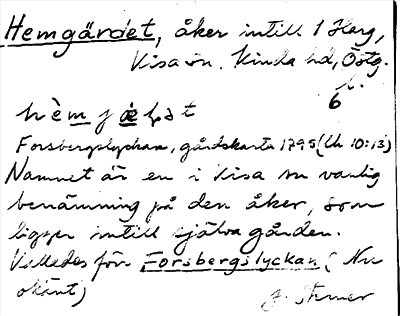 Hemgärdet, åker intill 1 Harg,
Kisa sn. Kinda hd, Östg.
l.
6
Forsbergslyckan, gårdskarta 1795 (Ch 10:13)
Namnet är en i Kisa sn vanlig
benämning på den åker, som
ligger intill själva gården.
Kallades förr Forsbergslyckan (Nu
okänt)